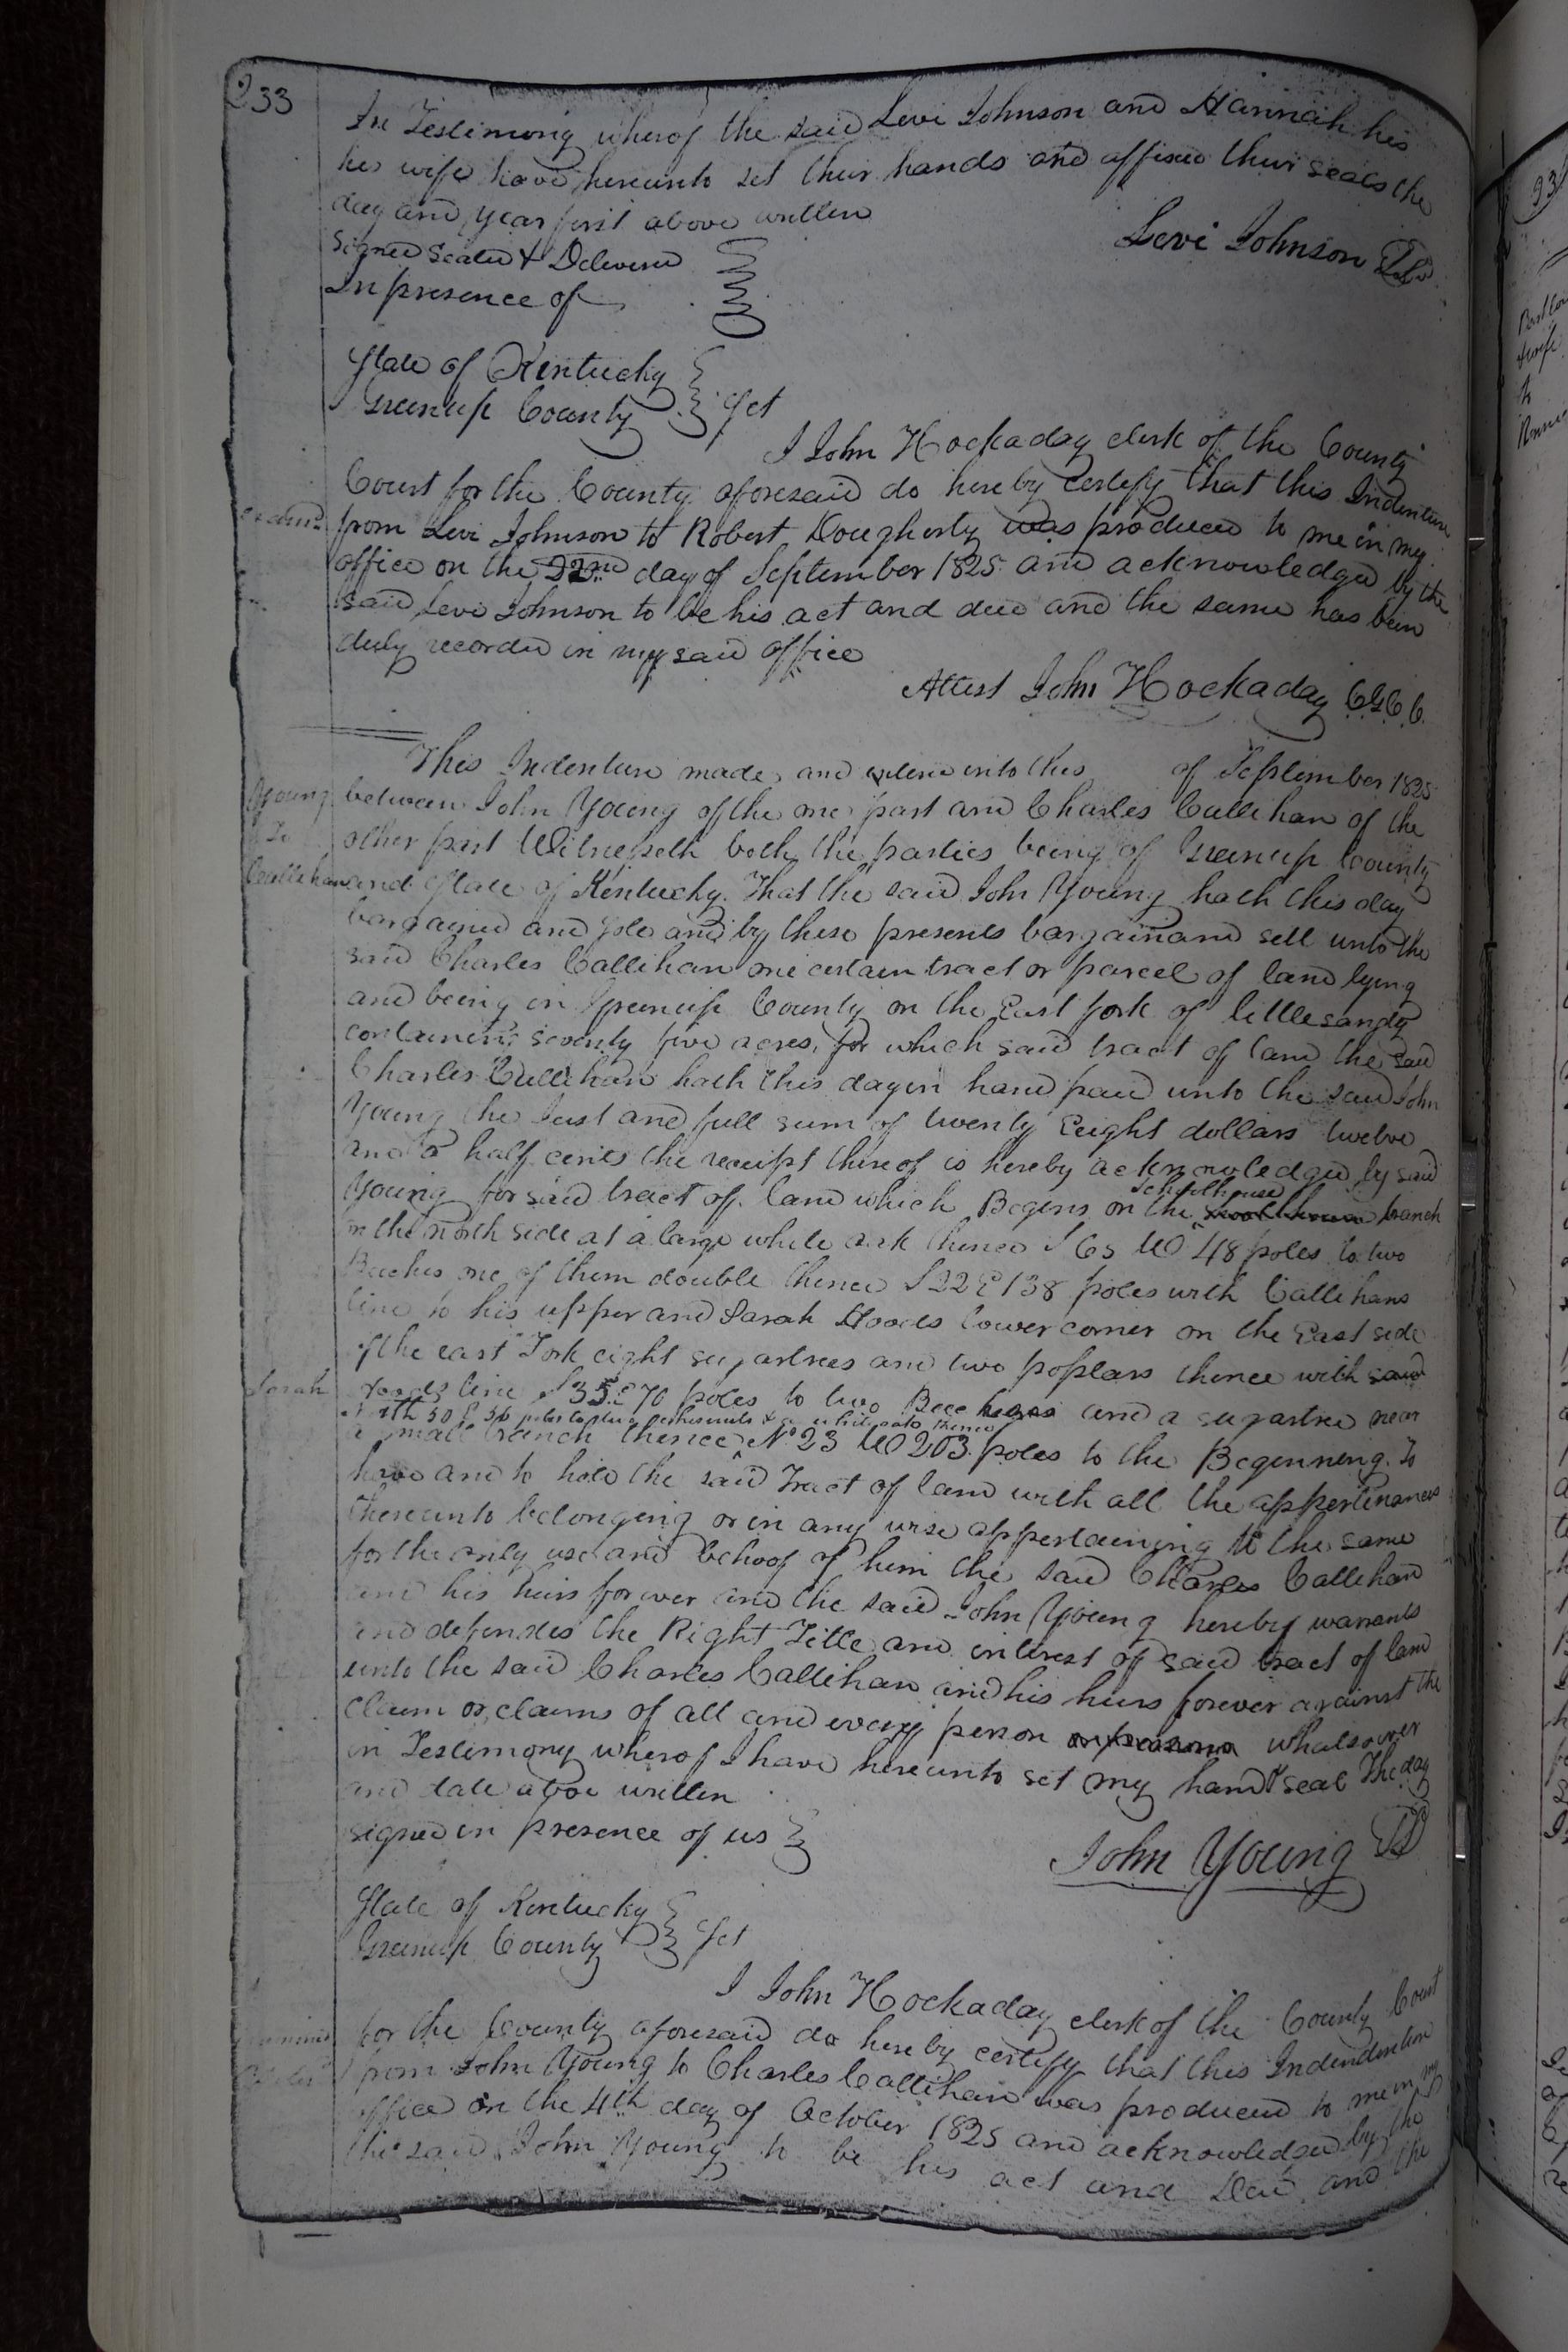 233
In Testimony wherof the said Levi Johnson and Hannah his
his wife have hereunto set their hands and affixed their seals the
day and year first above written
Signed Sealed & Delivered
In presence of
Levi Johnson
State of Kentucky
Greenup County Sct
I John Hockaday clerk of the County
Court for the County aforesaid do hereby certify that this Indenture
from Levi Johnson to Robert Dougherty was produced to me in my
office on the 22nd day of September 1825 and acknowledged by the
said Levi Johnson to be his act and deed and the same has been
duly recorded in my said office
Attest John Hockaday C.G.C.C.
This Indenture made and entered into this of September 1825
Young
To
Callihan
between John Young of the one part and Charles Callihan of the
other part Witnesseth both the parties being of Greenup County
and State of Kentucky. That the said John Young hath this day
bargained and sold and by these presents bargain and sell unto the
said Charles Callihan one certain tract or parcel of land lying
and being in Greenup County on the East fork of little sandy
containing seventy five acres, for which said tract of land the said
Charles Callihan hath this day in hand paid unto the said John
Young the Just and full sum of twenty Eight dollars twelve
and a half cents the receipt thereof is hereby acknowledged by said
Young for said tract of land which Begins on the schoolhouse branch
on the north side at a large white oak thence S 65 W 48 poles to two
Buches one of them double thence S 22 E 138 poles with Callihans
line to his upper and Sarah Hoods lower corner on the East side
of the east Fork eight sugartrees and two poplars thence with said
Sarah
Hoods line S 35 E 70 poles to two Beeches and a sugartree near
North 50 E 56 poles to & a white oak thence
a small branch thence N 23 W 203 poles to the Beginning. To
have and to hold the said Tract of land with all the appertinances
thereunto belonging or in any wise appertaining to the same
for the only use and behoof of him the said Charles Callihan
and his heirs forever and the said John Young hereby warrants
and defendes the Right Title and interest of said tract of land
unto the said Charles Callihan and his heirs forever against the
claim or claims of all and every person or persons whatsoever
in Testimony wherof I have hereunto set my hand & seal The day
and date above written
signed in presence of us
John Young
State of Kentucky
Greenup County Sct
I John Hockaday clerk of the County Court
for the County aforesaid do hereby certify that this Indendenture
from John Young to Charles Callihan was produced to me in my
office on the 4th day of October 1825 and acknowledged by the
the said John Young to be his act and Deed and the